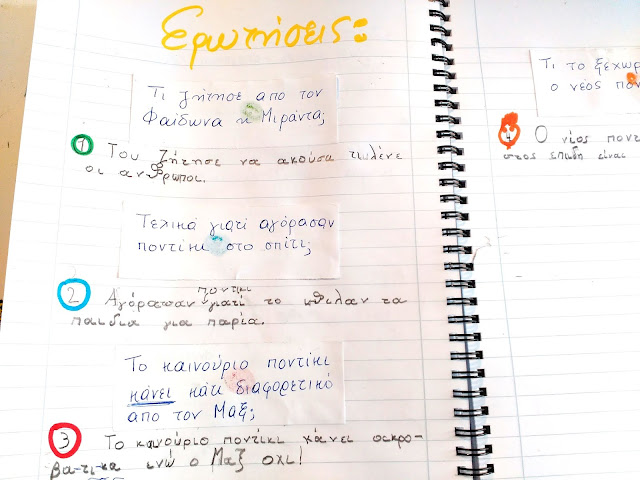 Ερωτήσεις:
Τι ζήτησε απο τον
Φαίδωνα η Μιράντα;
1 Του ζήτησε να ακούσα τι λένε
οι ανθρωποι.
Τελικά γιατί αγόρασαν
ποντίκι στο σπίτι;
ποντικι
2 Αγόρασαν γιατί το ηθελαν τα
παιδια για παρία.
Το καινούριο ποντίκι
κάνει κάτι διαφορετικό
απο τον Μαξ;
3 Το καινούριο ποντικι κάνει ακρο-
βα-τι-κα ενώ ο Μαξ οχι!
Τι το ξεχωρ
ο νέος ποντ
4 Ο νέος ποντ
επιδη είναι